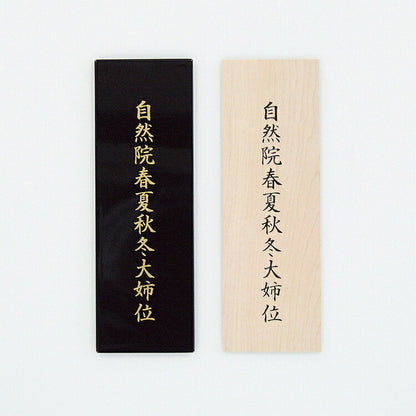 自然院春夏秋冬大姉位
自然院春夏秋冬大姉位